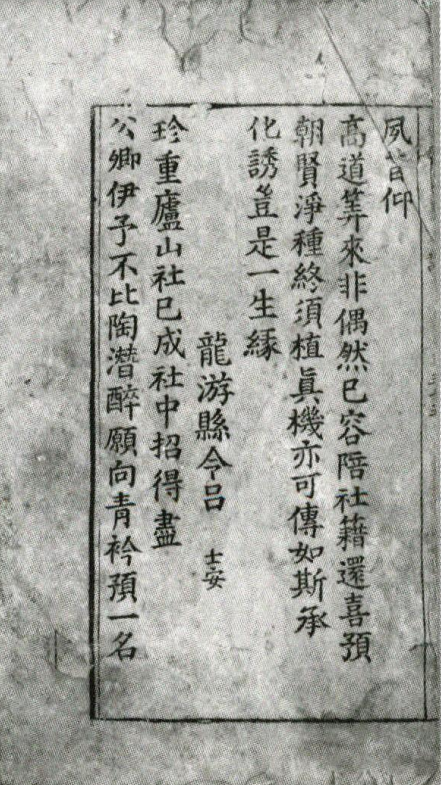 夙昔仰
高道筭來非偶然已容陪社籍還喜預
朝賢淨種終須植眞機亦可傳如斯承
化誘豈是一生緣
龍游縣令呂 士安
珍重廬山社已成社中招得盡
公卿伊予不比陶潛醉願向青衿預一名